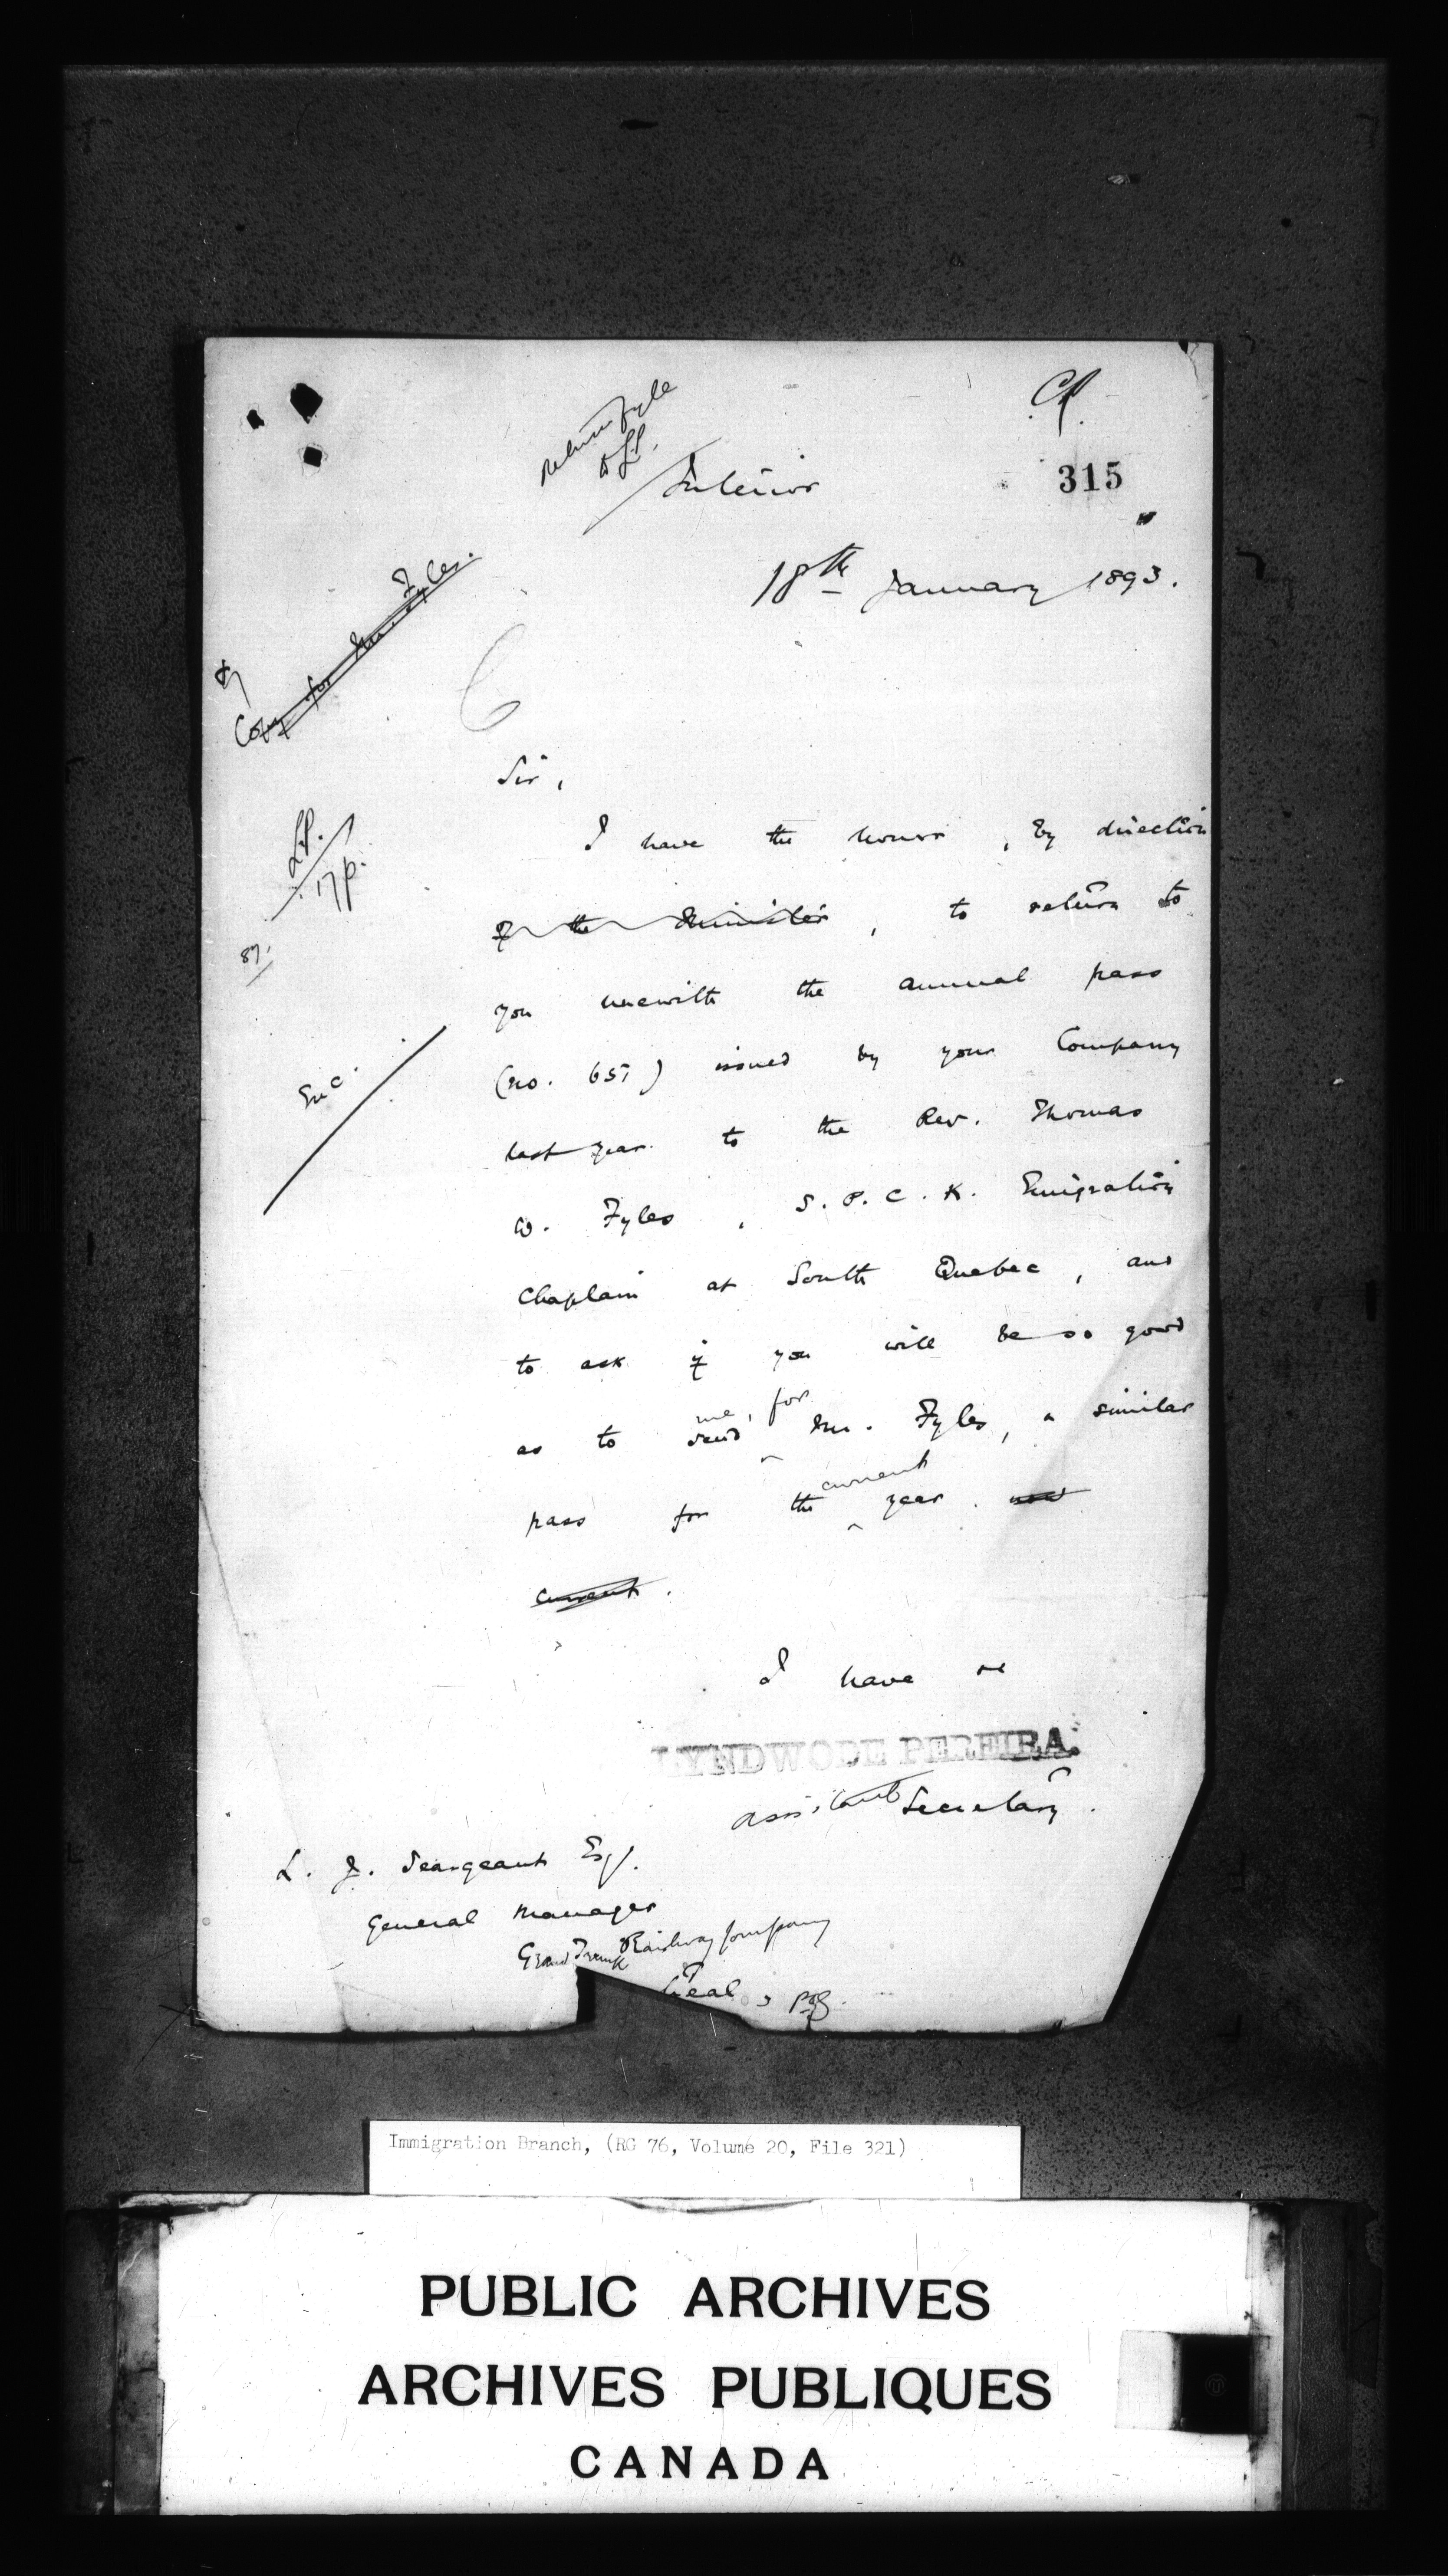 return fyle
to L.P.
Interior
315
18th January 1893.
Copy for Mr. Fyles.
Sir,
I have the honor, by direction
of the Minister, to return to
you herewith the annual pass
(no. 657) issued by your Company
last year to the Rev. Thomas
W. Fyles, S.P.C.K. Emigration
Chaplain at South Quebec, and
to ask if you will be so good
me, for
as to send Mr. Fyles, a similar
current
pass for the year. now
current.
Enc.
L.P.
17/1.
I have &c
LYNDWODE PEREIRA.
Assistant Secretary.
L. J. Seargeant Esq.
General Manager
Grand Trunk Railway Company
treal, P.Q.
Immigration Branch, (RG 76, Volume 20, File 321)
PUBLIC ARCHIVES
ARCHIVES PUBLIQUES
CANADA